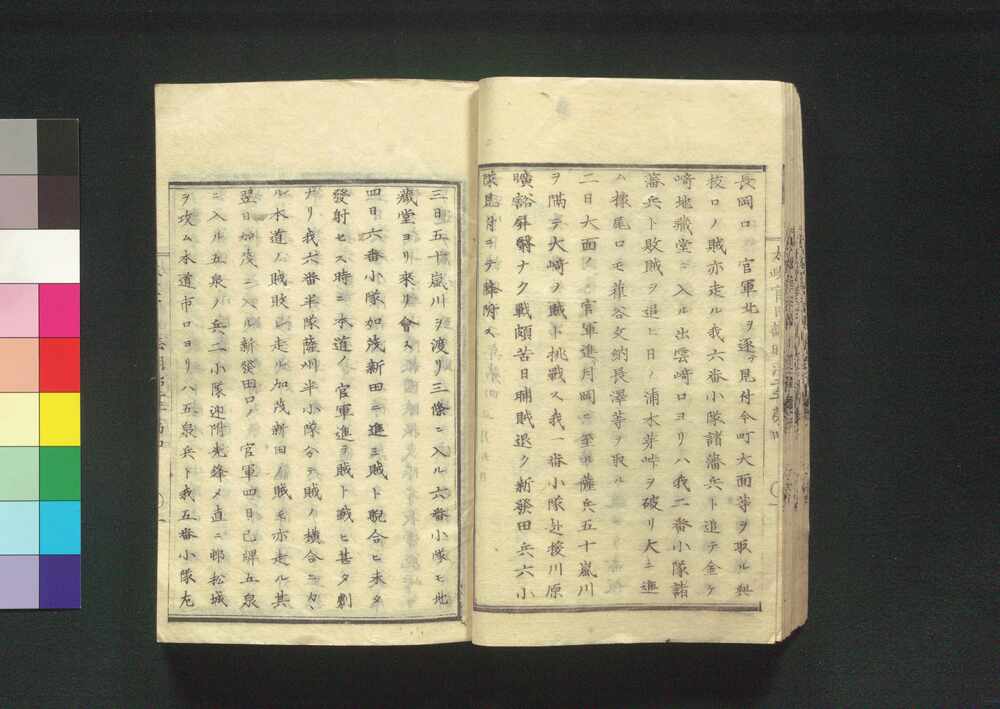 長岡口ノ官軍北ヲ逐ヒ見付今町大面等ヲ取ル與
板口ノ賊亦走ル我六番小隊諸藩兵ト追テ金ケ
崎地藏堂ニ入ル出雲崎口ヨリハ我二番小隊諸
藩兵ト敗賊ヲ追ヒ日ノ浦木芽峠ヲ破リ大ニ進
ム橡尾口モ葎谷文納長澤等ヲ取ル
二日大面ノ官軍進月岡ニ至ル薩兵五十嵐川
ヲ隔テ大崎ノ賊ト挑戰ス我一番小隊赴援川原
曠豁屏翳ナク戰頗苦日晡賊退ク新發田兵六小
隊
三日五十嵐川ヲ渡リ三條ニ入ル六番小隊モ地
藏堂ヨリ來リ會ス
四日六番小隊加茂新田ニ進ミ賊ト睨合ヒ未タ
發射セス時ニ本道ノ官軍進テ賊ト戰ヒ甚タ劇
ナリ我六番半隊薩州半小隊分テ賊ノ横合ニカヽ
ル本道ノ賊敗走ル加茂新田ノ賊モ亦走ル其
翌日加茂ニ入ル新發田口ノ官軍四日已ニ五泉
ニ入ル五泉ノ兵二小隊迎附先鋒メ直ニ村松城
ヲ攻ム水道市口ヨリハ五泉兵ト我五番小隊左